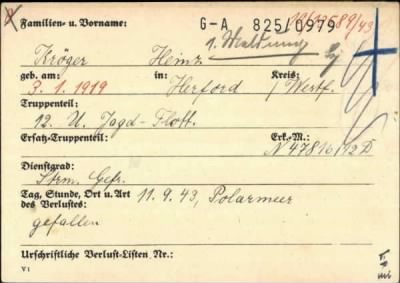 Familien- u. Vorname: G-A 825/0979
Kröger Heinz 1. Meldung
geb. am: in: Kreis:
3. 1. 1919 Herford / Westf.
Truppenteil:
12. U. Jagd-Flott.
Ersatz-Truppenteil: Erk.-M.:
N 47816/42 D
Dienstgrad:
Strm. Gefr.
Tag, Stunde, Ort u. Art 11. 9. 43, Polarmeer
des Verlustes:
gefallen
Urschriftliche Verlust-Listen Nr.:
V1